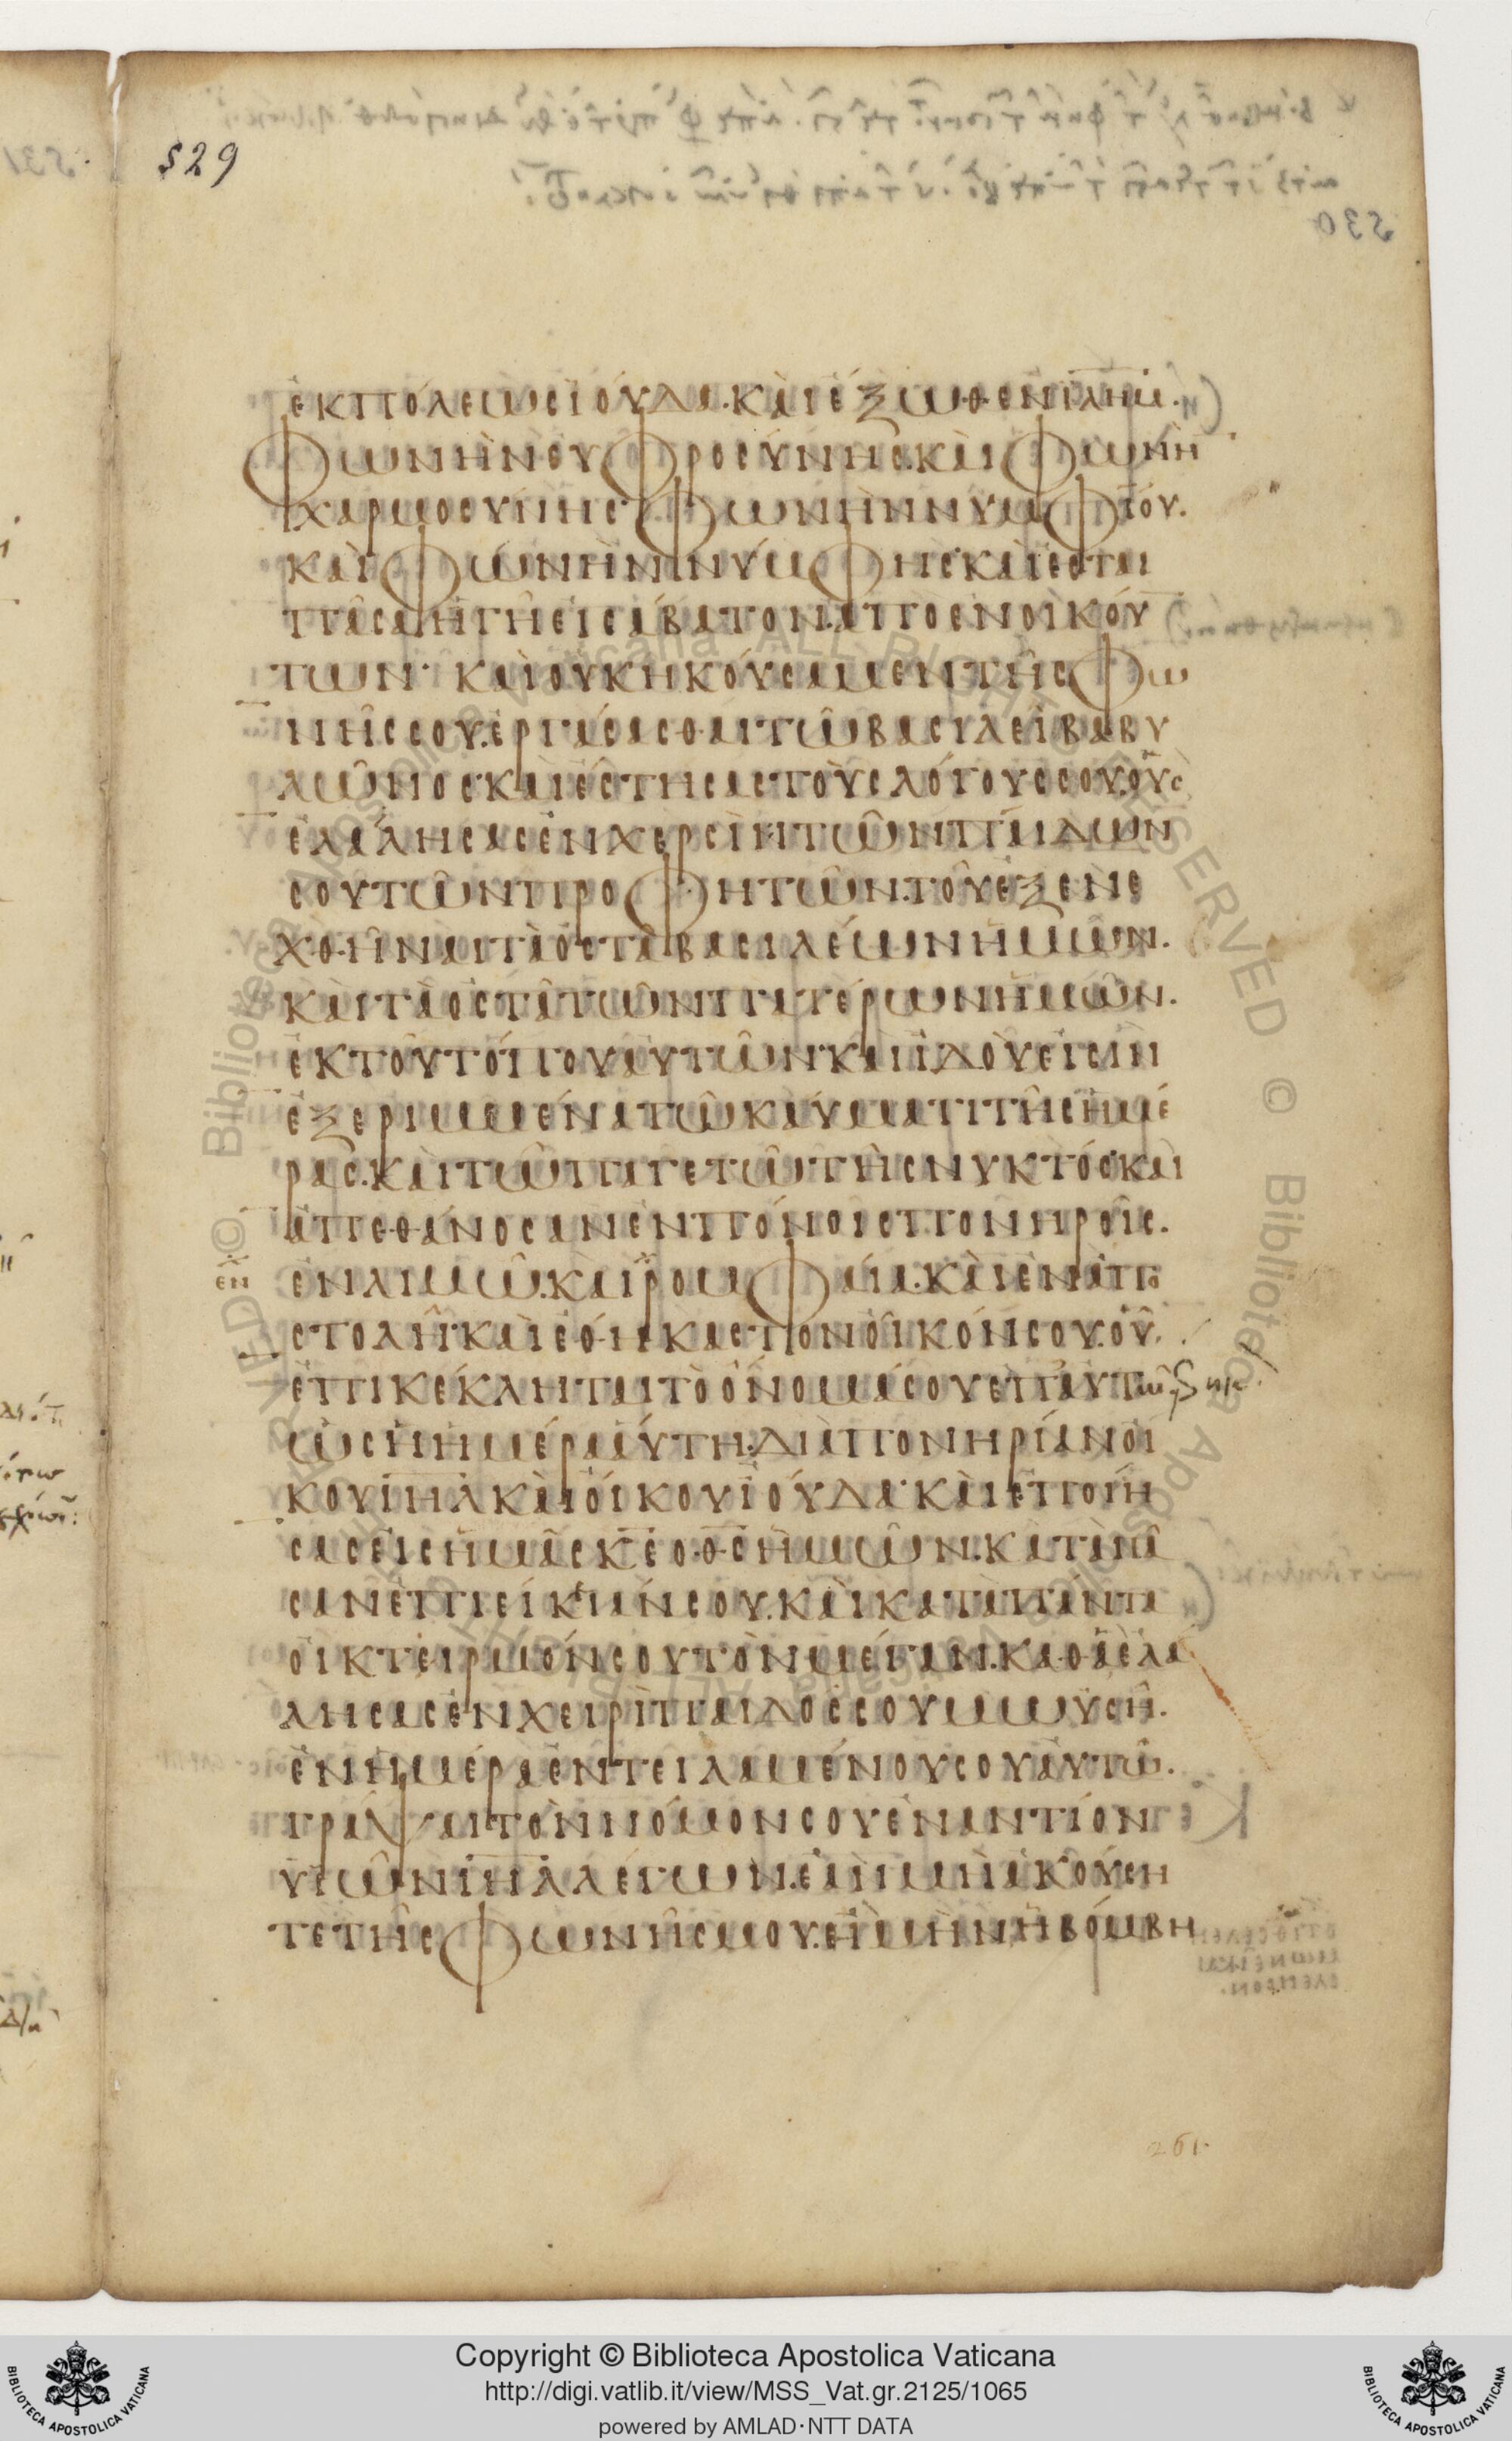 529
ἐκπόλεωσϊούδα·κὰιἔξωθενϊλημ̅·
φωνὴνευφροσύνης·κὰιφωνὴ
χαρμοσυνης·φωνὴννυμφίου·
κὰιφωνὴννύμφης·κὰιἔσται
πᾶσαἡγῆεἰσἄβατονἀποενοικόυ
των·κὰιουκηκόυσαμεντῆσφω
νῆςσου·ἐργάσασθαιτῶβασιλεῖβαβυ
λῶνος·κὰιἔστησαςτοὺςλόγουςσουοὓς
ἐλάλησαςἐνχερσὶντῶνπαίδων
σουτῶνπροφητῶν·τοῦἐξενε
χθῆναιτὰὀστᾶβασιλέωνἡμῶν·
κὰιτὰὀστᾶτῶνπατέρωνἡμῶν·
ἐκτοῦτόπουἀυτῶν·κὰιϊδοὺεἰσὶν
ἐξεριμμέναπῶκάυματιτῆςἡμέ
ρας·κὰιτῶπαγετῶτῆςνυκτός·κὰι
ἀπεθάνοσανἐνπόνοιςπονηροῖς·
ἐνλιμῶ·κὰιῥομφάια·κὰιἐναπο
στολῆ·κὰιἔθηκαςτὸνὀῖκόνσου·οὗ
ἐπικέκλητaιτὸὄνομάσουἐπαυτῶ
ὡςἡἡμέρααύτη·διαπονηρίανὀί
κουϊη̅λκὰιὀίκουϊούδα·κὰιἐπόιη
σαςεἰςἡμᾶςκ̅εοθ̅ςἡμῶν·κατὰπᾶ
σανἐπιείκειάνσου·κὰικατὰπάντα
οἰκτειρμόνσουτὸνμέγαν·καθὰἐλά
λησαςἐνχειρὶπαιδόςσουμωυσῆ·
ἐνἡμέραἐντειλαμένουσουἀυτῶ·
γράψαιτὸννόμονσουἐναντίον
υἱῶνϊη̅λλέγων·ἐὰνμὴἀκούση
τετῆςφωνῆςμου·εἰμὴνἡβόμβη
ἐν
261·
Copyright © Biblioteca Apostolica Vaticana
http://digi.vatlib.it/view/MSS_Vat.gr.2125/1065
powered by AMLAD·NTT DATA
BIBLIOTECA APOSTOLICA VATICANA
BIBLIOTECA APOSTOLICA VATICANA